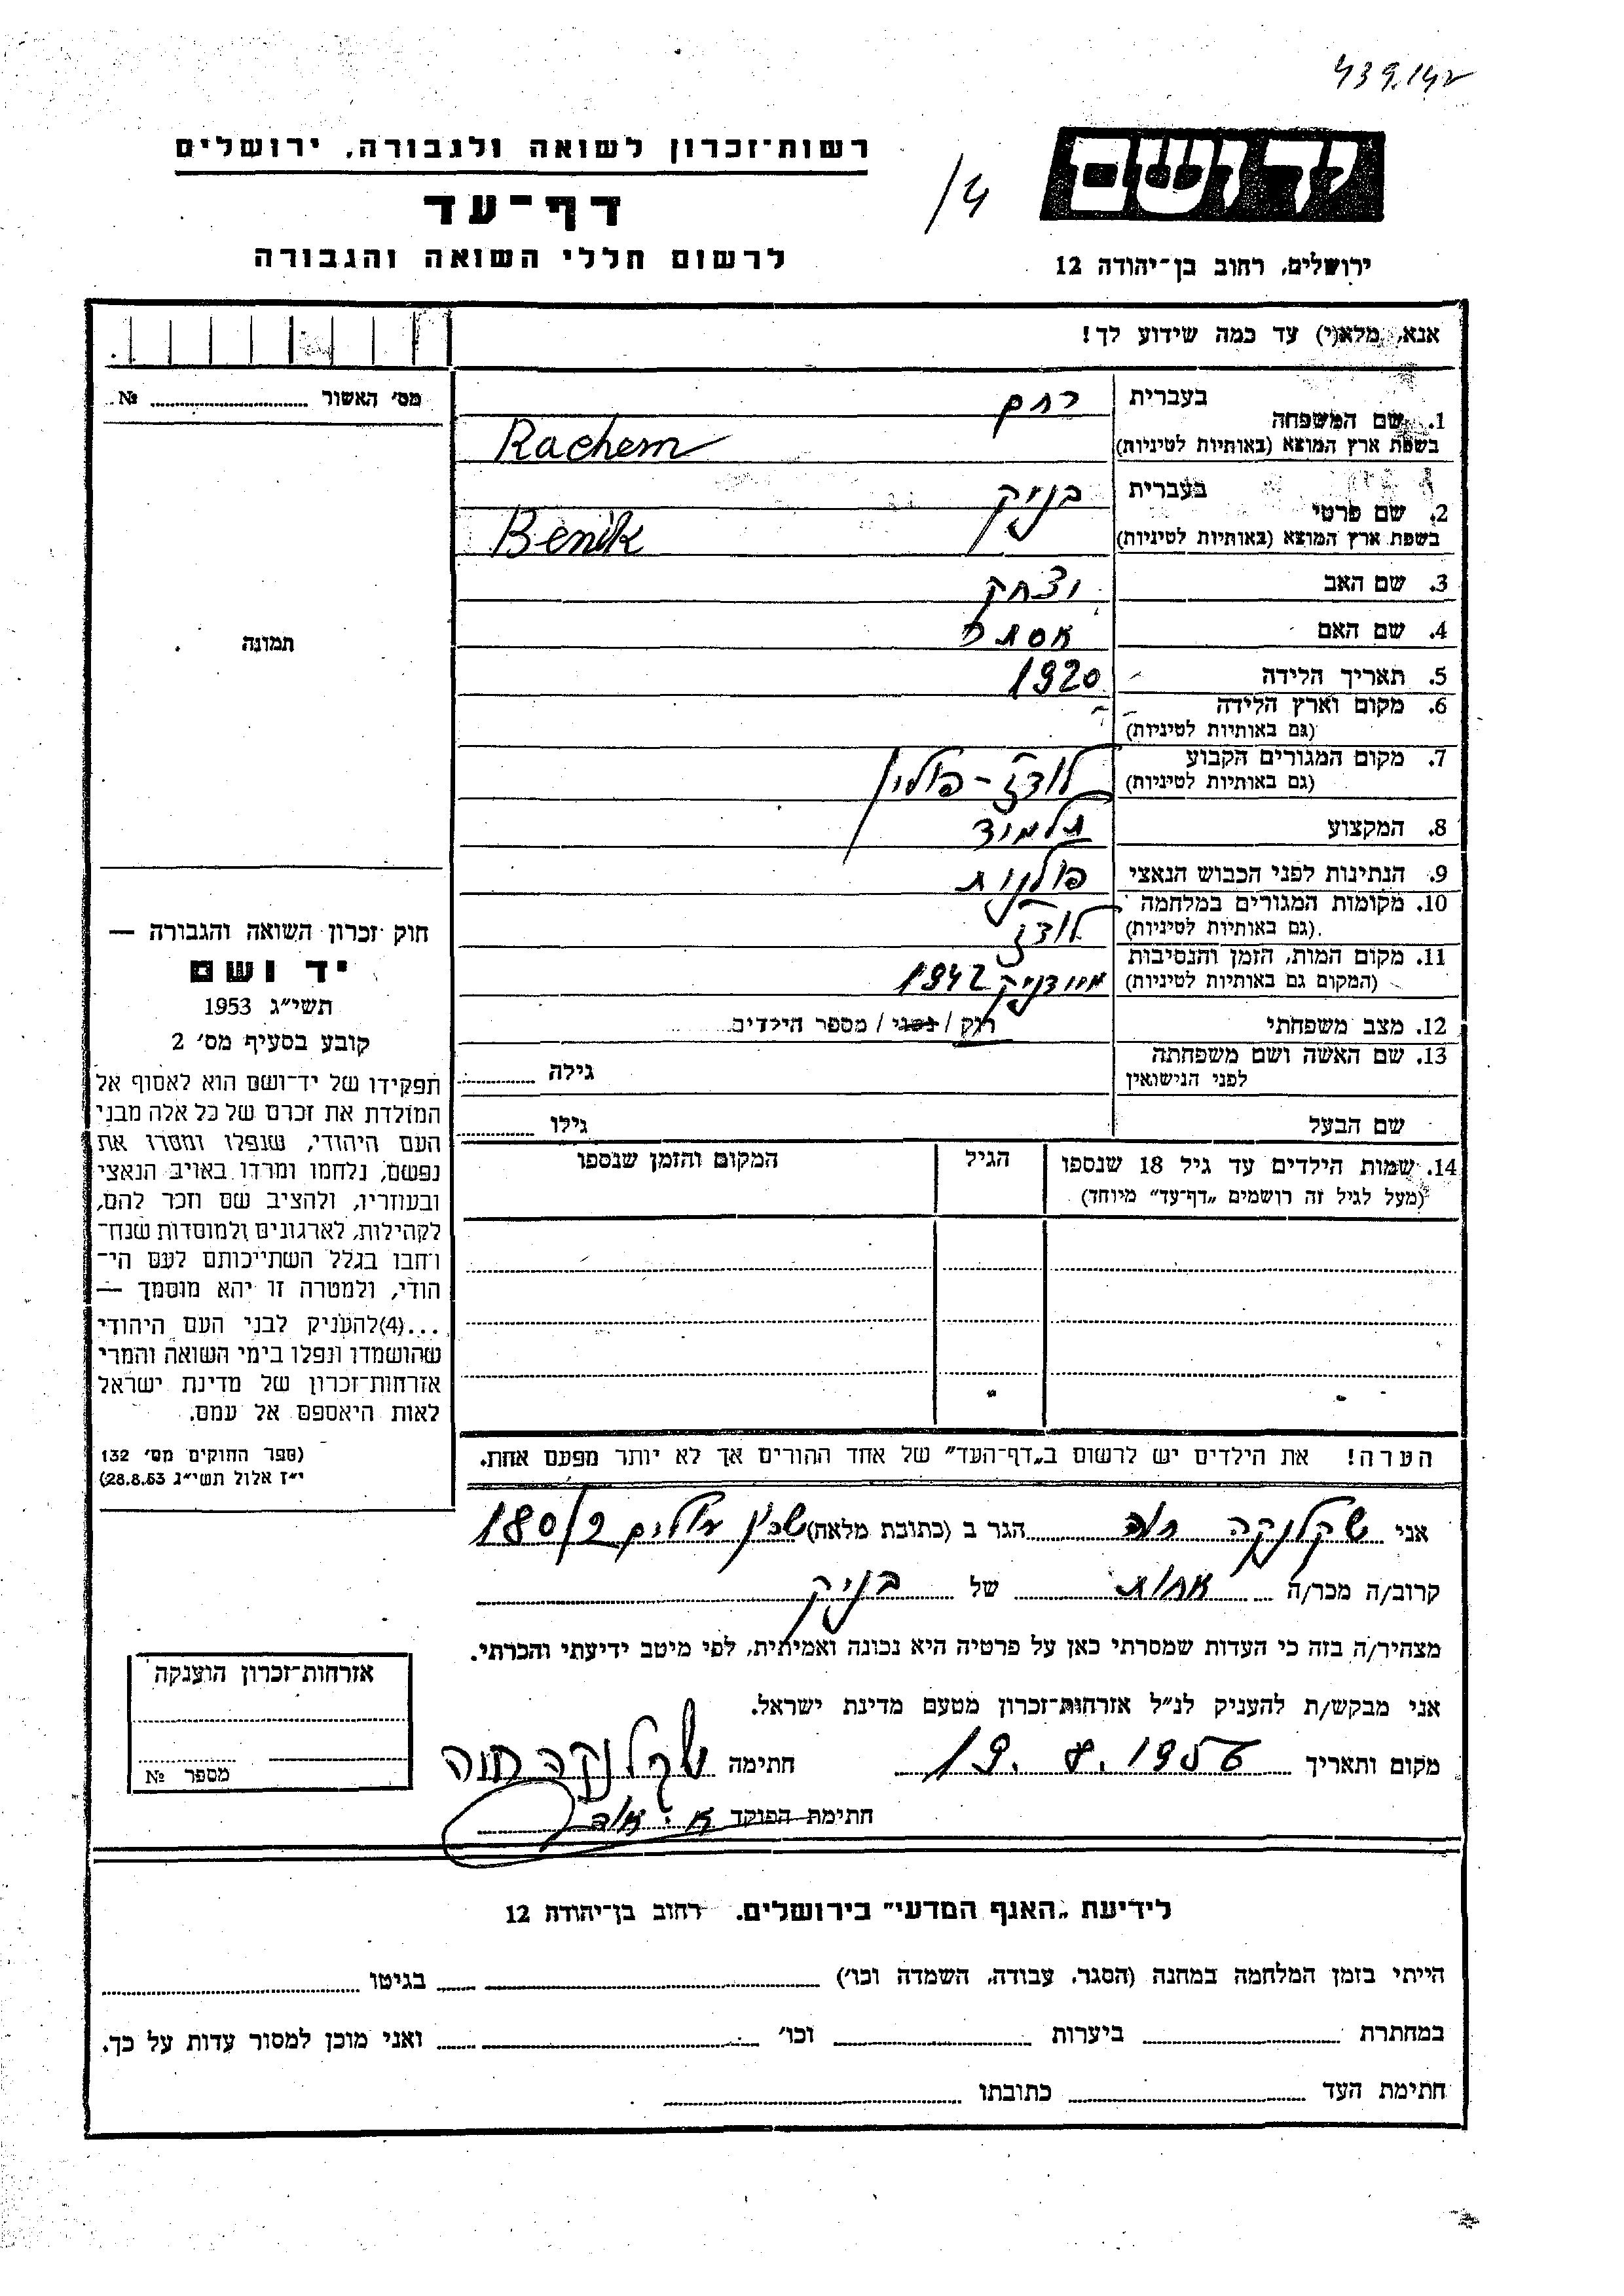 439.142
רשות־זכרון לשואה ולגבורה, ירושלים
יד ושם
4/
דף־עד
לרשום חללי השואה והגבורה
ירושלים, רחוב בן־יהודה 12
אנא, מלא(י) עד כמה שידוע לך!
מס׳ האשור ........ №
תמונה
1. שם המשפחה
בעברית רחם
בשפת ארץ המוצא (באותיות לטיניות) Rachem
2. שם פרטי
בעברית בניק
בשפת ארץ המוצא (באותיות לטיניות) Benik
3. שם האב יצחק
4. שם האם אסתר
5. תאריך הלידה 1920
6. מקום וארץ הלידה
(גם באותיות לטיניות)
7. מקום המגורים הקבוע
(גם באותיות לטיניות) לודז׳ - פולין
8. המקצוע תלמיד
9. הנתינות לפני הכבוש הנאצי פולנית
10. מקומות המגורים במלחמה
(גם באותיות לטיניות) לודז׳
11. מקום המות, הזמן והנסיבות
(המקום גם באותיות לטיניות) מיידניק 1942
12. מצב משפחתי רוק / נשוי / מספר הילדים
13. שם האשה ושם משפחתה
לפני הנישואין גילה
שם הבעל גילו
14. שמות הילדים עד גיל 18 שנספו
(מעל לגיל זה רושמים „דף־עד” מיוחד)
הגיל
המקום והזמן שנספו
חוק זכרון השואה והגבורה —
יד ושם
תשי״ג 1953
קובע בסעיף מס׳ 2
תפקידו של יד־ושם הוא לאסוף אל
המולדת את זכרם של כל אלה מבני
העם היהודי, שנפלו ומסרו את
נפשם, נלחמו ומרדו באויב הנאצי
ובעוזריו, ולהציב שם וזכר להם,
לקהילות, לארגונים ולמוסדות שנח־
רחבו בגלל השתייכותם לעם הי־
הודי, ולמטרה זו יהא מוסמך —
...(4) להעניק לבני העם היהודי
שהושמדו ונפלו בימי השואה והמרי
אזרחות־זכרון של מדינת ישראל
לאות היאספם אל עמם.
(ספר החוקים מס׳ 132
י״ז אלול תשי״ג 28.8.53)
הערה! את הילדים יש לרשום ב„דף־העד” של אחד ההורים אך לא יותר מפעם אחת.
אני שקלנקה חוה הגר ב (כתובת מלאה) שכון עולים 180/2
קרוב/ה מכר/ה אחות של בניק
מצהיר/ה בזה כי העדות שמסרתי כאן על פרטיה היא נכונה ואמיתית, לפי מיטב ידיעתי והכרתי.
אני מבקש/ת להעניק לנ״ל אזרחות־זכרון מטעם מדינת ישראל.
מקום ותאריך 19.8.1956 חתימה שקלנקה חוה
חתימת הפוקד
אזרחות־זכרון הוענקה
מספר №
לידיעת „האגף המדעי” בירושלים. רחוב בן־יהודה 12
הייתי בזמן המלחמה במחנה (הסגר, עבודה, השמדה וכו׳) בגיטו
במחתרת ביערות וכו׳ ואני מוכן למסור עדות על כך.
חתימת העד כתובתו